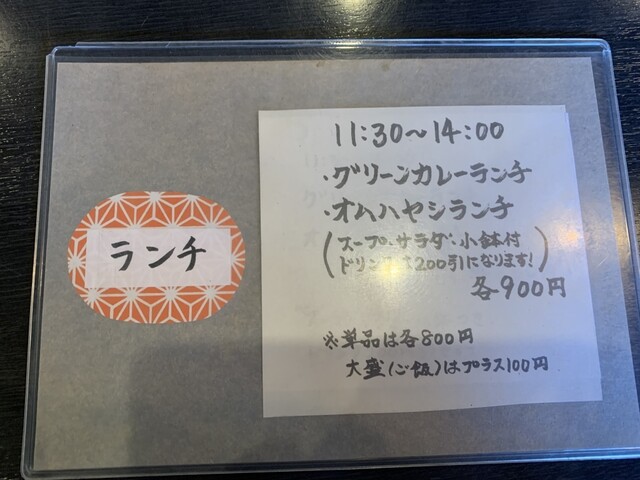 ランチ
11:30～14:00
・グリーンカレーランチ
・オムハヤシランチ
(スープ・サラダ・小鉢付
ドリンクは200引になります!)
各900円
※単品は各800円
大盛(ご飯)はプラス100円